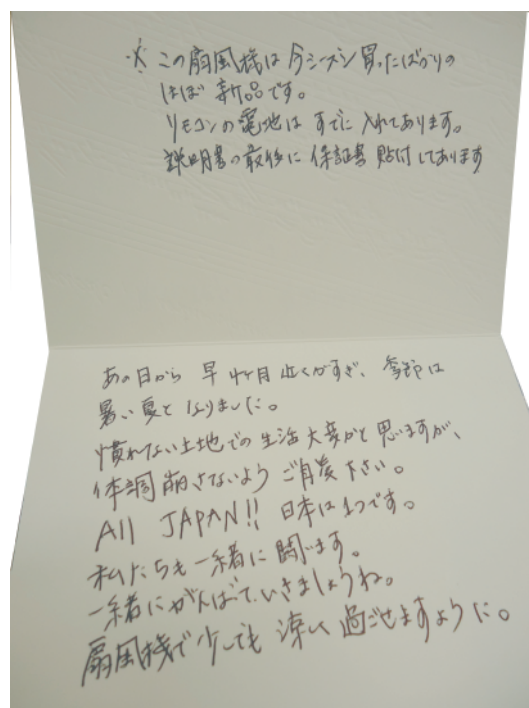 ※ この扇風機は今シーズン買ったばかりの
ほぼ新品です。
リモコンの電池はすでに入れてあります。
説明書の最後に保証書貼付してあります
あの日から早4ヶ月近くがすぎ、季節は
暑い夏となりました。
慣れない土地での生活大変かと思いますが、
体調崩さないようご自愛下さい。
All JAPAN!! 日本は1つです。
私たちも一緒に闘います。
一緒にがんばっていきましょうね。
扇風機で少しでも涼しく過ごせますように。